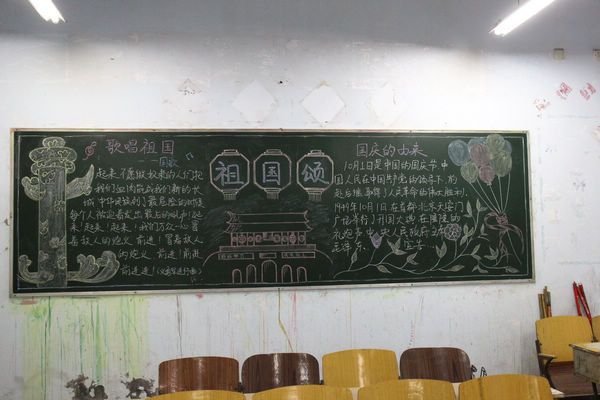 歌唱祖国
——国歌
起来 不愿做奴隶的人们 把
我们血肉筑成我们新的长
城 中华民族到了最危险的时候
每个人被迫着发出最后的吼声 起
来！起来！起来！我们万众一心 冒
着敌人的炮火 前进！冒着敌人
的炮火 前进！前进
前进进！（义勇军进行曲）
祖国颂
国庆的由来
10月1日是中国的国庆节 中
国人民在中国共产党的领导下 前
赴后继 取得了人民革命的伟大胜利.
1949年10月1日 在首都北京天安门
广场举行了开国大典 在隆隆的
礼炮声 中央人民政府
毛泽东